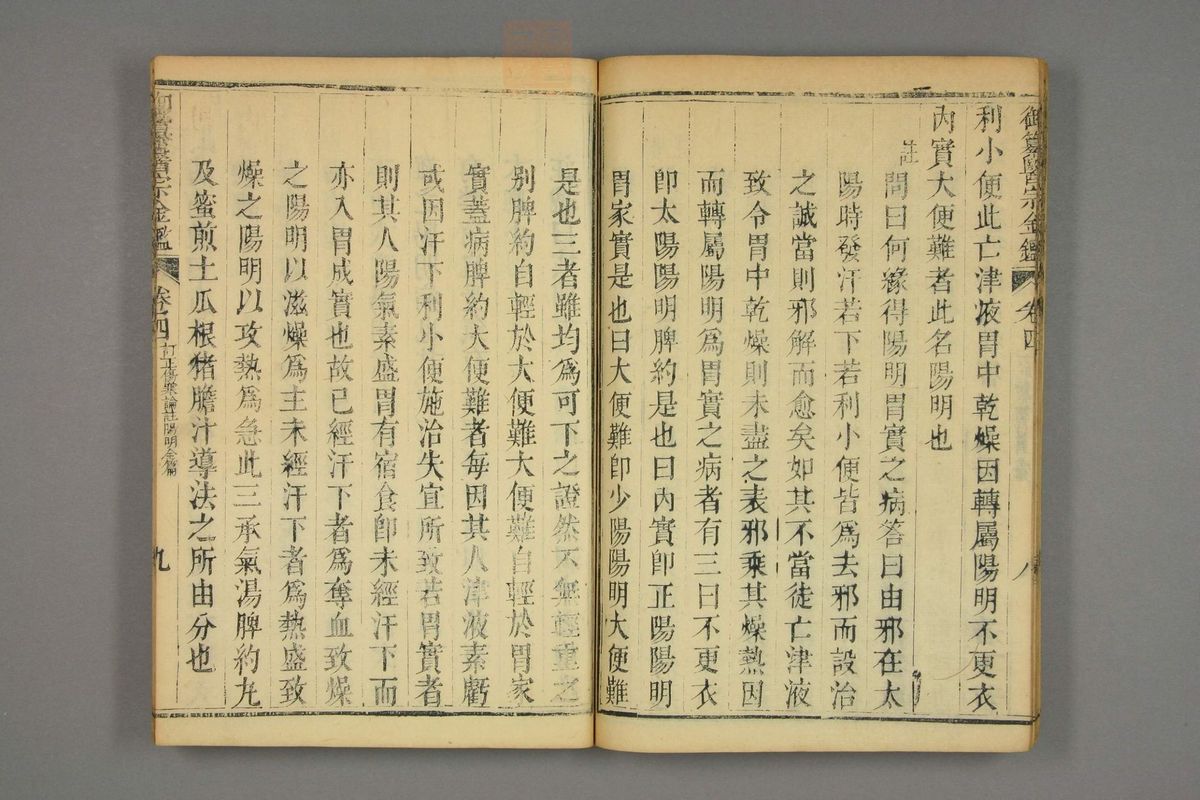 御纂醫宗金鑑 卷四 八
利小便此亡津液胃中乾燥因轉屬陽明不更衣
內實大便難者此名陽明也
註
問曰何緣得陽明胃實之病答曰由邪在太
陽時發汗若下若利小便皆爲去邪而設治
之誠當則邪解而愈矣如其不當徒亡津液
致令胃中乾燥則未盡之表邪乘其燥熱因
而轉屬陽明爲胃實之病者有三曰不更衣
卽太陽陽明脾約是也曰內實卽正陽陽明
胃家實是也曰大便難卽少陽陽明大便難
是也三者雖均爲可下之證然不無輕重之
别脾約自輕於大便難大便難自輕於胃家
實蓋病脾約大便難者每因其人津液素虧
或因汗下利小便施治失宜所致若胃實者
則其人陽氣素盛胃有宿食卽未經汗下而
亦入胃成實也故已經汗下者爲奪血致燥
之陽明以滋燥爲主未經汗下者爲熱盛致
燥之陽明以攻熱爲急此三承氣湯脾約丸
及蜜煎土瓜根猪膽汁導法之所由分也
御纂醫宗金鑑 卷四 訂正傷寒論註陽明全篇 九